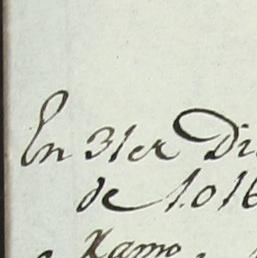 En 31er Di
de 1.016
Ramo